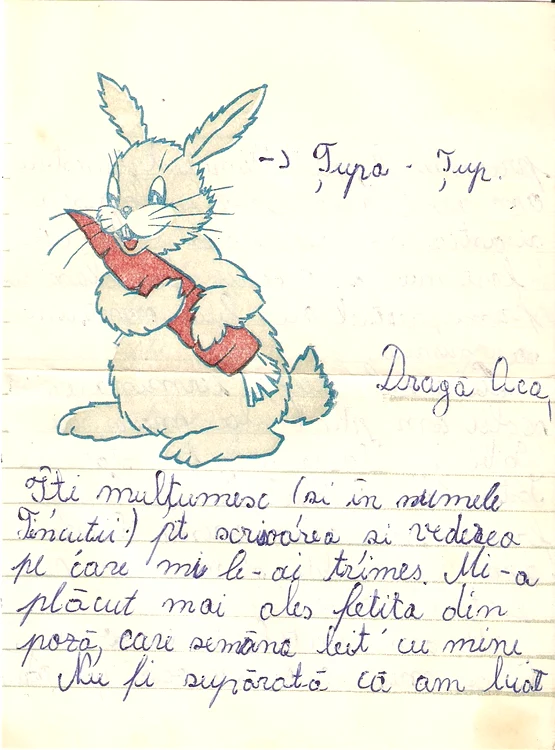 -> Țupa - Țup.
Dragă Aca,
Iti mulțumesc (si în numele
Tincutii) pt scrisoarea si vederea
pe care mi le-ai trimes. Mi-a
plăcut mai ales fetita din
poză, care semăna leit cu mine
Nu fi supărată că am luat